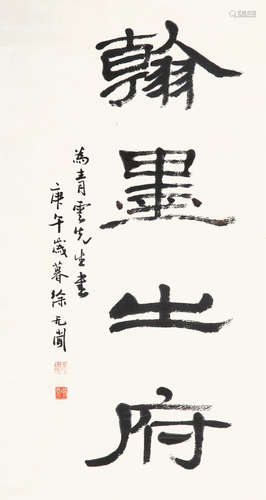 翰墨之府
為青雲先生書
庚午歲暮徐无聞